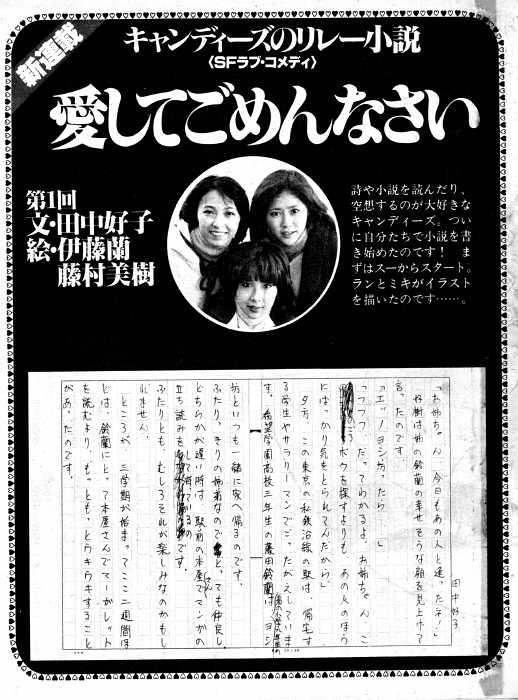 新連載
キャンディーズのリレー小説
〈SFラブ・コメディ〉
愛してごめんなさい
第1回
文・田中好子
絵・伊藤蘭
藤村美樹
詩や小説を読んだり、
空想するのが大好きな
キャンディーズ。つい
に自分たちで小説を書
き始めたのです! ま
ずはスーからスタート。
ランとミキがイラスト
を描いたのです……。
田中好子
「お姉ちゃん、今日もあの人と逢ったネ!」
好樹は姉の鈴蘭の幸せそうな顔を見上げて
言ったのです。
「エッ!ヨシ坊ったら…」
「フフフ、だってわかるよ、お姉ちゃん、こ
ボクを探すよりも、あの人のほう
にばっかり気をとられてんだから」
夕方、この東京の私鉄沿線の駅は、帰宅す
る学生やサラリーマンでごったがえしていま
す。希望学園高校三年生の藤田鈴蘭は、ヨシ
坊といつも一緒に家へ帰るのです。
ふたりっきりの姉弟なので、とっても仲良し。
どちらかが遅い時は、駅前の本屋でマンガの
立ち読みをして待っているのです。
ふたりとも、むしろそれが楽しみなのかもし
れません。
ところが、三学期が始まってここ二週間ほ
どは、鈴蘭にとって本屋さんでマーガレット
を読むより、もっともっとウキウキすること
があったのです。